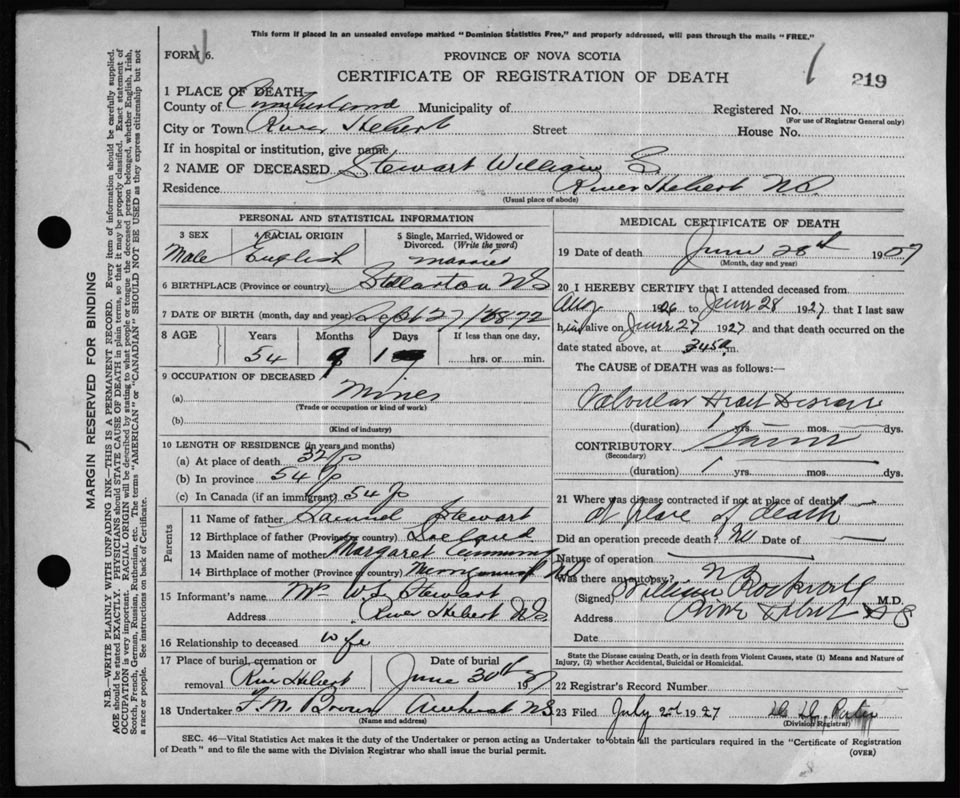 This form if placed in an unsealed envelope marked "Dominion Statistics Free," and properly addressed, will pass through the mails "FREE."
FORM 6.
PROVINCE OF NOVA SCOTIA
CERTIFICATE OF REGISTRATION OF DEATH
219
1 PLACE OF DEATH
County of Cumberland Municipality of Registered No.
(For use of Registrar General only)
City or Town River Hebert Street House No.
If in hospital or institution, give name
2 NAME OF DECEASED Stewart William
Residence River Hebert N.S.
(Usual place of abode)
PERSONAL AND STATISTICAL INFORMATION
3 SEX Male
4 RACIAL ORIGIN English
5 Single, Married, Widowed or Divorced. (Write the word) Married
6 BIRTHPLACE (Province or country) Stellarton NS
7 DATE OF BIRTH (month, day and year) Sept 27 1872
8 AGE Years Months Days If less than one day,
54 9 1 hrs. or min.
9 OCCUPATION OF DECEASED
(a) Miner
(Trade or occupation or kind of work)
(b)
(Kind of industry)
10 LENGTH OF RESIDENCE (in years and months)
(a) At place of death 32
(b) In province 54
(c) In Canada (if an immigrant) 54
Parents
11 Name of father Samuel Stewart
12 Birthplace of father (Province or country) Ireland
13 Maiden name of mother Margaret
14 Birthplace of mother (Province or country)
15 Informant's name Mrs Stewart
Address River Hebert NS
16 Relationship to deceased Wife
17 Place of burial, cremation or removal River Hebert
Date of burial June 30th 1927
18 Undertaker F. M. Brown Amherst NS
(Name and address)
MEDICAL CERTIFICATE OF DEATH
19 Date of death June 28th 1927
(Month, day and year)
20 I HEREBY CERTIFY that I attended deceased from
Aug 1926 to June 28 1927, that I last saw
him alive on June 27 1927 and that death occurred on
date stated above, at m.
The CAUSE of DEATH was as follows:—
Valvular Heart Disease
(duration) 1 yrs. mos. dys.
CONTRIBUTORY Same
(Secondary)
(duration) 1 yrs. mos. dys.
21 Where was disease contracted if not at place of death?
At place of death
Did an operation precede death? No Date of
Nature of operation
Was there an autopsy? No
(Signed) William Rockwell M.D.
Address River Hebert N S
Date
State the Disease causing Death, or in death from Violent Causes, state (1) Means and Nature of
Injury, (2) whether Accidental, Suicidal or Homicidal.
22 Registrar's Record Number
23 Filed July 2nd 1927
(Division Registrar)
SEC. 46—Vital Statistics Act makes it the duty of the Undertaker or person acting as Undertaker to obtain all the particulars required in the "Certificate of Registration
of Death" and to file the same with the Division Registrar who shall issue the burial permit.
(OVER)
MARGIN RESERVED FOR BINDING
N.B.—WRITE PLAINLY WITH UNFADING INK—THIS IS A PERMANENT RECORD. Every item of information should be carefully supplied.
AGE should be stated EXACTLY. PHYSICIANS should STATE CAUSE OF DEATH in plain terms, so that it may be properly classified. Exact statement of
OCCUPATION is very important. RACIAL ORIGIN will be described by stating to what people or tongue the deceased person belonged, whether English, Irish,
Scotch, French, German, Russian, Ruthenian, etc. The terms "AMERICAN" or "CANADIAN" SHOULD NOT BE USED as they express citizenship but not
a race or people. See instructions on back of Certificate.